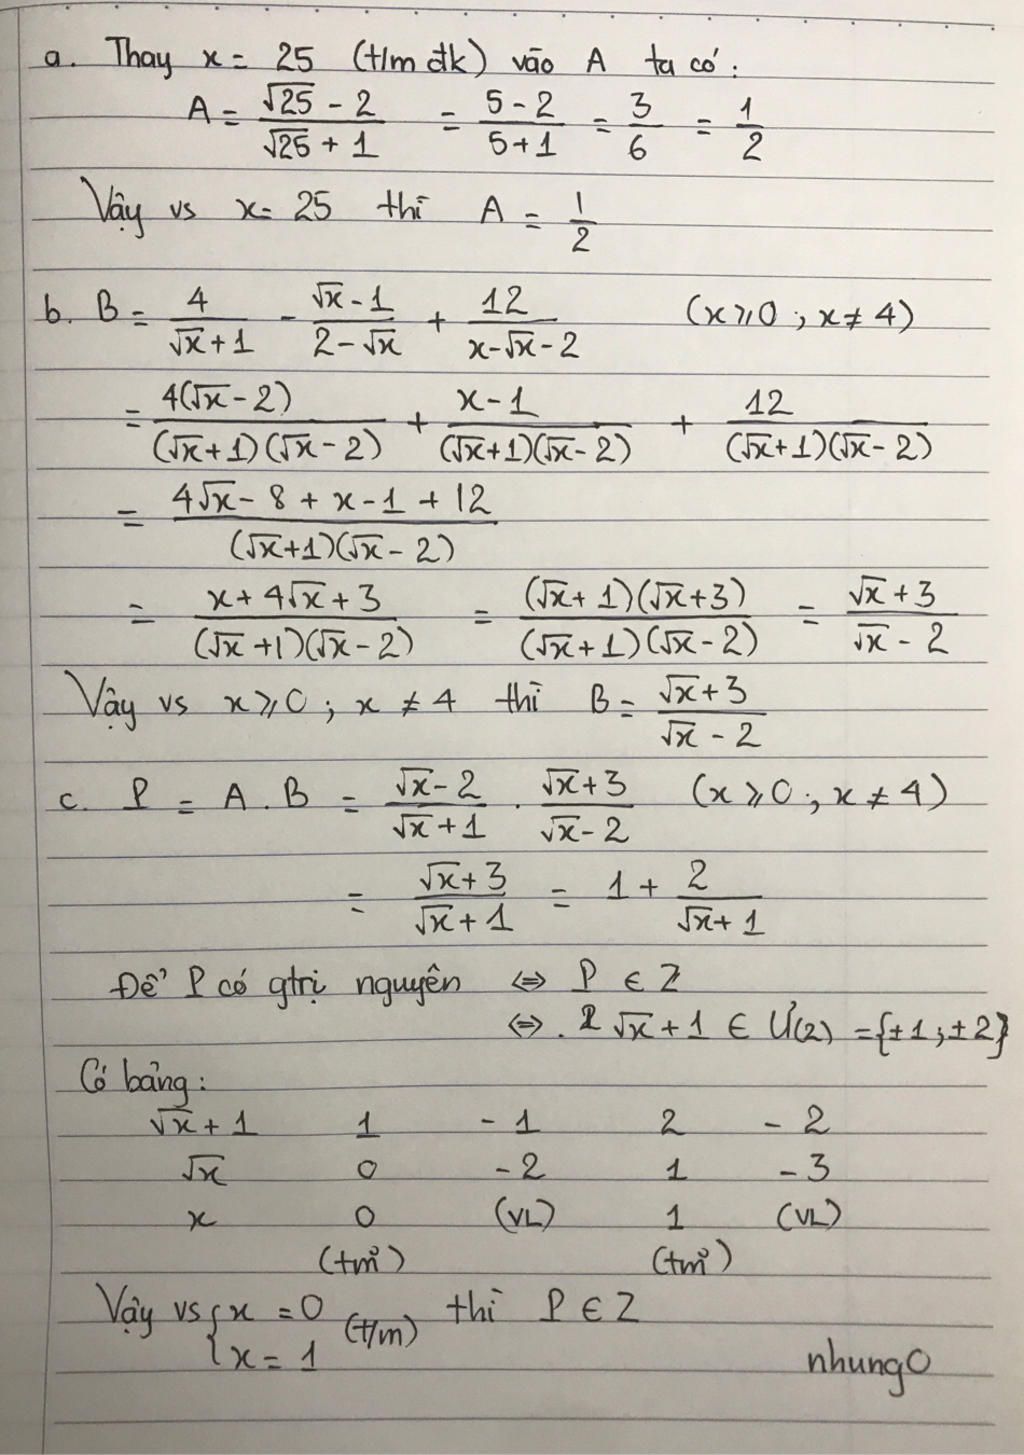 a. Thay x = 25 (t/m đk) vào A ta có:
A = (√25 - 2)/(√25 + 1) = (5 - 2)/(5 + 1) = 3/6 = 1/2
Vậy vs x = 25 thì A = 1/2
b. B = 4/(√x + 1) - (√x - 1)/(2 - √x) + 12/(x - √x - 2) (x ≥ 0 ; x ≠ 4)
= 4(√x - 2)/((√x + 1)(√x - 2)) + (x - 1)/((√x + 1)(√x - 2)) + 12/((√x + 1)(√x - 2))
= (4√x - 8 + x - 1 + 12)/((√x + 1)(√x - 2))
= (x + 4√x + 3)/((√x + 1)(√x - 2)) = ((√x + 1)(√x + 3))/((√x + 1)(√x - 2)) = (√x + 3)/(√x - 2)
Vậy vs x ≥ 0 ; x ≠ 4 thì B = (√x + 3)/(√x - 2)
c. P = A . B = (√x - 2)/(√x + 1) . (√x + 3)/(√x - 2) (x ≥ 0 ; x ≠ 4)
= (√x + 3)/(√x + 1) = 1 + 2/(√x + 1)
Để P có gtrị nguyên ⇔ P ∈ Z
⇔ √x + 1 ∈ Ư(2) = {±1 ; ±2}
Có bảng:
√x + 1 1 -1 2 -2
√x 0 -2 1 -3
x 0 (VL) 1 (VL)
(tm) (tm)
Vậy vs { x = 0 (t/m) thì P ∈ Z
x = 1
nhung0